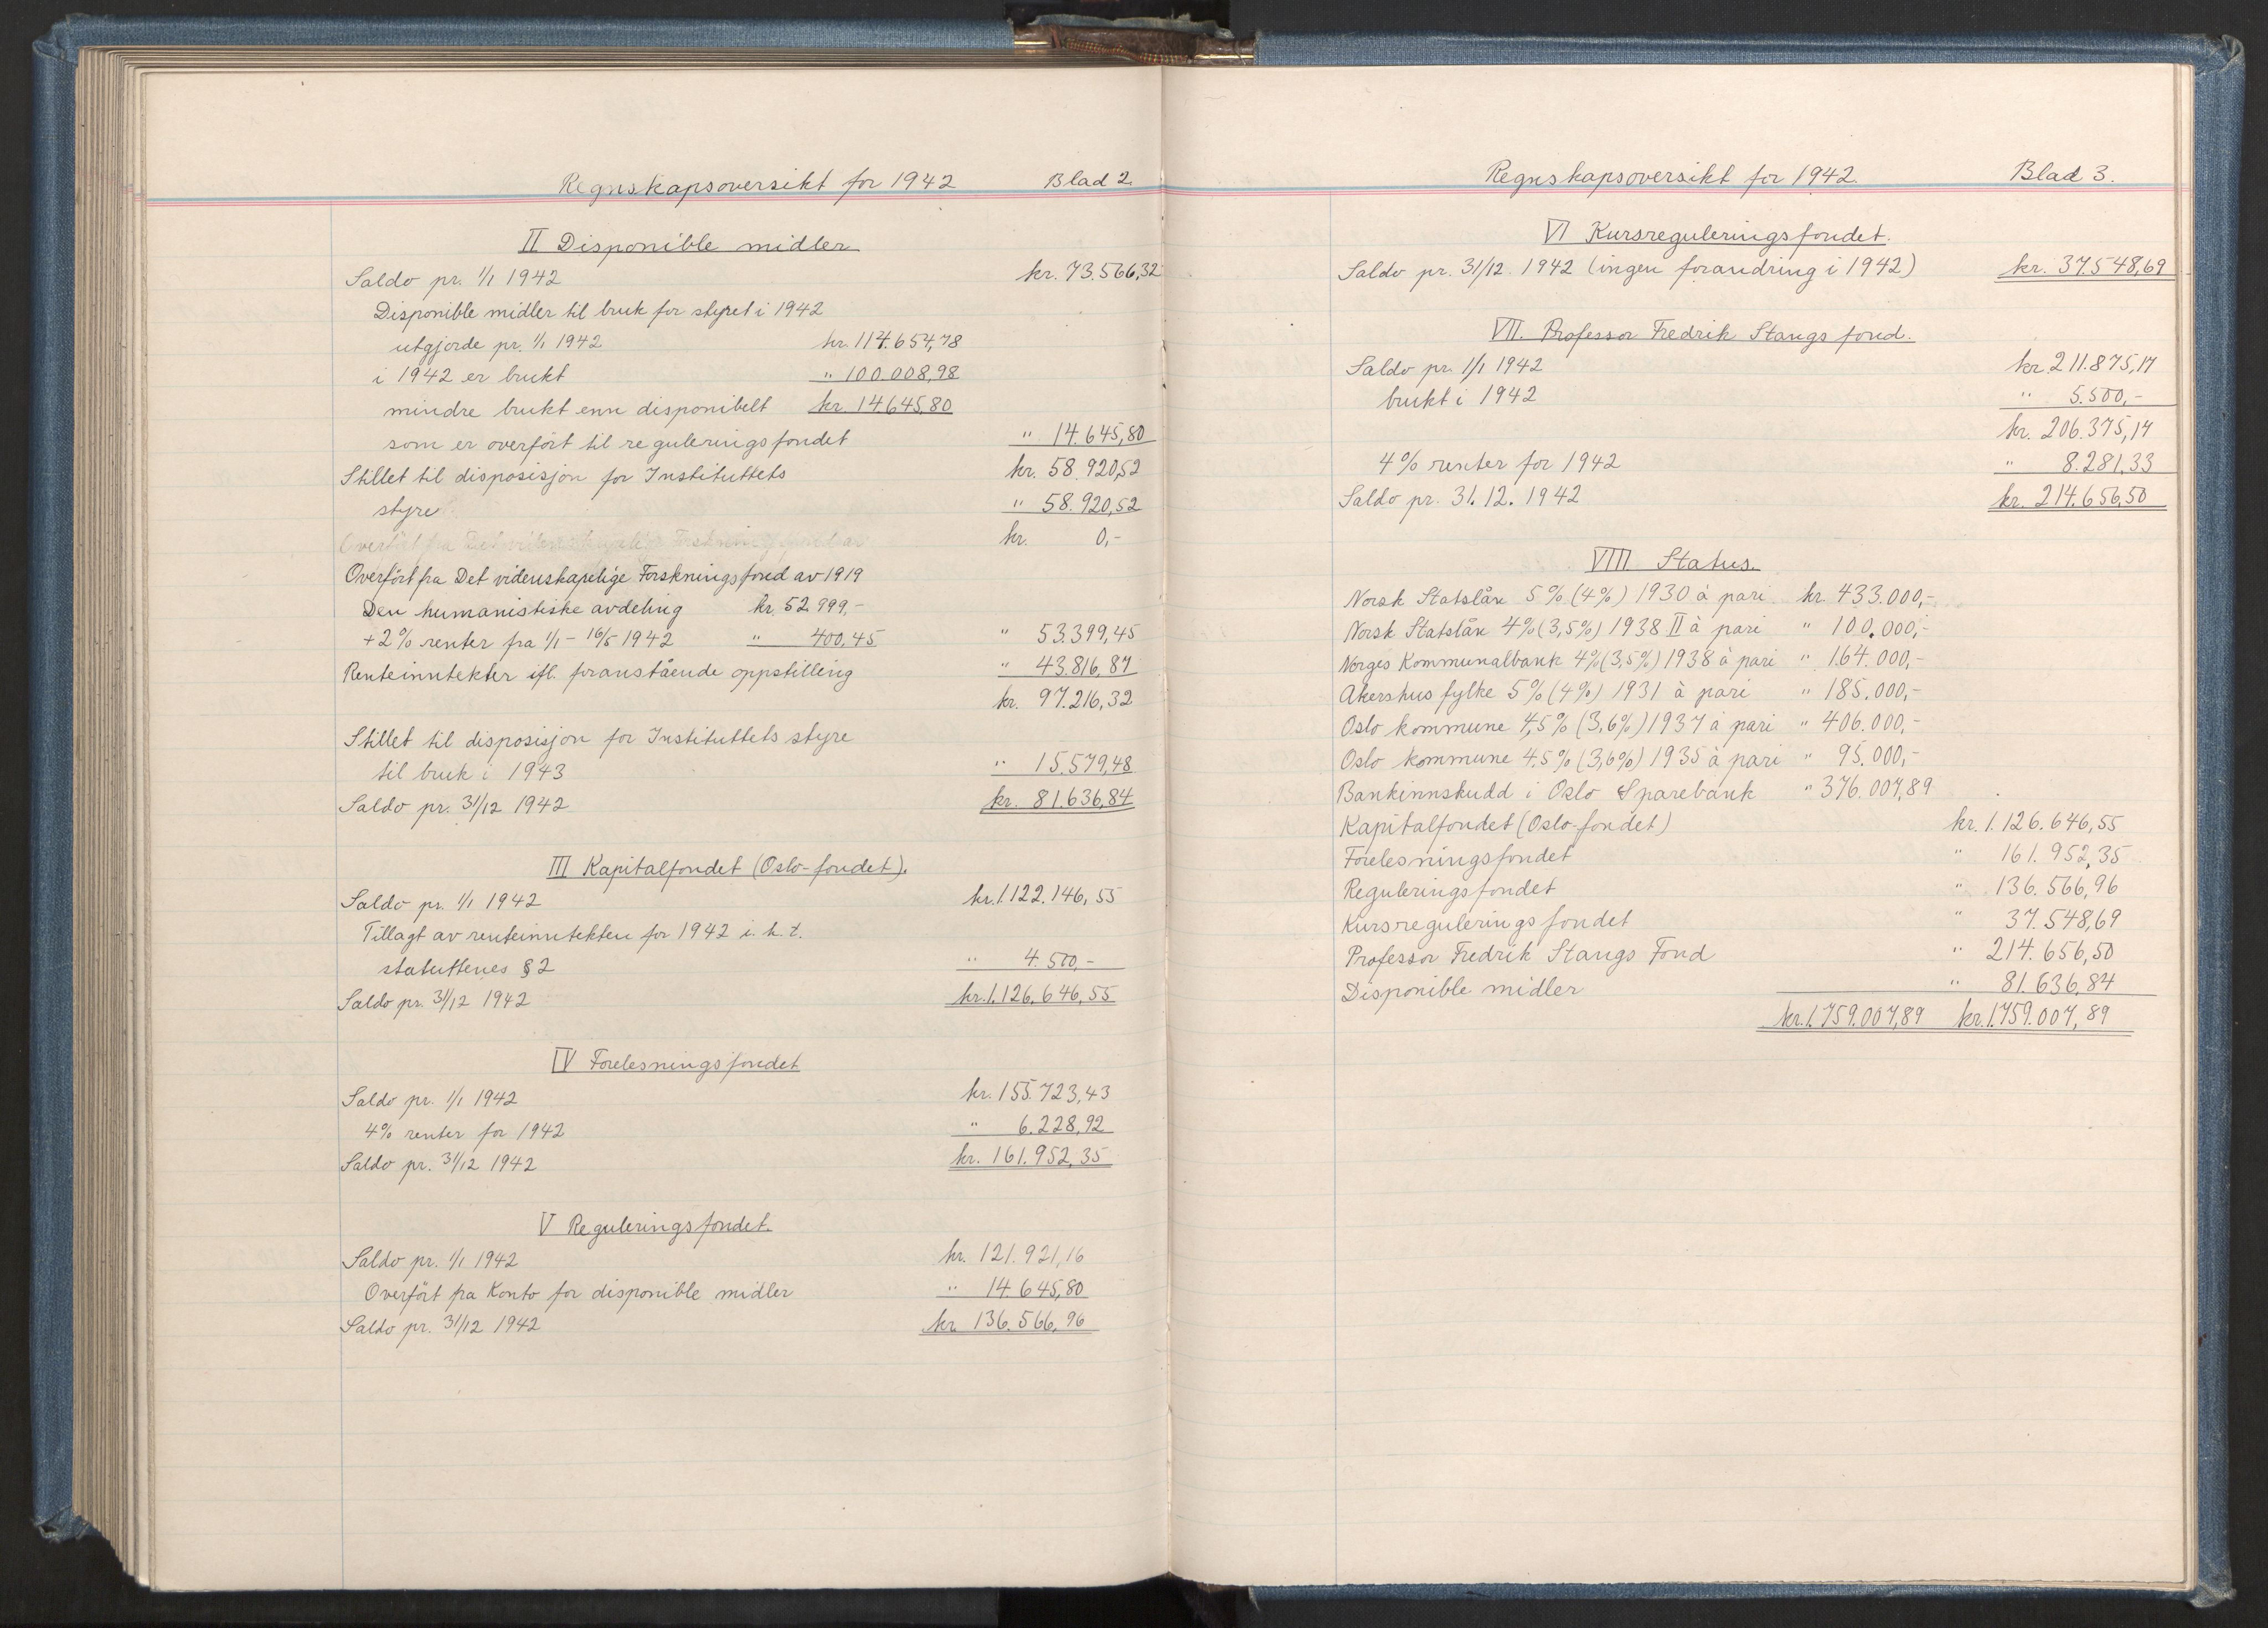 Regnskapsoversikt for 1942 Blad 2.
II Disponible midler
Saldo pr. 1/1 1942 kr. 73.566,32
Disponible midler til bruk for styret i 1942
utgjorde pr. 1/1 1942 kr. 114.654,78
i 1942 er brukt " 100.008,98
mindre brukt enn disponibelt kr. 14645,80
som er overført til reguleringsfondet " 14.645,80
Stillet til disposisjon for Instituttets kr. 58.920,52
styre " 58.920,52
kr. 0,-
Overført fra Det videnskapelige Forskningsfond av 1919
Den humanistiske avdeling kr. 52.999,-
+ 2% renter fra 1/1 - 16/5 1942 " 400,45 " 53.399,45
Renteinntekter ifl. foranstående oppstilling " 43.816,87
kr. 97.216,32
Stillet til disposisjon for Instituttets styre
til bruk i 1943 " 15.579,48
Saldo pr. 31/12 1942 kr. 81.636,84
III Kapitalfondet (Oslo-fondet).
Saldo pr. 1/1 1942 kr. 1.122.146,55
Tillagt av renteinntekten for 1942 i. h. t.
statuttenes § 2 " 4.500,-
Saldo pr. 31/12 1942 kr. 1.126.646,55
IV Forelesningsfondet
Saldo pr. 1/1 1942 kr. 155.723,43
4% renter for 1942 " 6.228,92
Saldo pr. 31/12 1942 kr. 161.952,35
V Reguleringsfondet.
Saldo pr. 1/1 1942 kr. 121.921,16
Overført fra Konto for disponible midler " 14.645,80
Saldo pr. 31/12 1942 kr. 136.566,96
Regnskapsoversikt for 1942. Blad 3.
VI Kursreguleringsfondet.
Saldo pr. 31/12 1942 (ingen forandring i 1942) kr. 37.548,69
VII. Professor Fredrik Stangs fond.
Saldo pr. 1/1 1942 kr. 211.875,17
brukt i 1942 " 5.500,-
kr. 206.375,17
4% renter for 1942 " 8.281,33
Saldo pr. 31.12.1942 kr. 214.656,50
VIII Status.
Norsk Statslån 5% (4%) 1930 à pari kr. 433.000,-
Norsk Statslån 4% (3,5%) 1938 II à pari " 100.000,-
Norges Kommunalbank 4% (3,5%) 1938 à pari " 164.000,-
Akershus fylke 5% (4%) 1931 à pari " 185.000,-
Oslo kommune 4,5% (3,6%) 1937 à pari " 406.000,-
Oslo kommune 4.5% (3,6%) 1935 à pari " 95.000,-
Bankinnskudd i Oslo Sparebank " 376.007,89
Kapitalfondet (Oslo-fondet) kr. 1.126.646,55
Forelesningsfondet " 161.952,35
Reguleringsfondet " 136.566,96
Kursreguleringsfondet " 37.548,69
Professor Fredrik Stangs Fond " 214.656,50
Disponible midler " 81.636,84
kr. 1.759.007,89 kr. 1.759.007,89